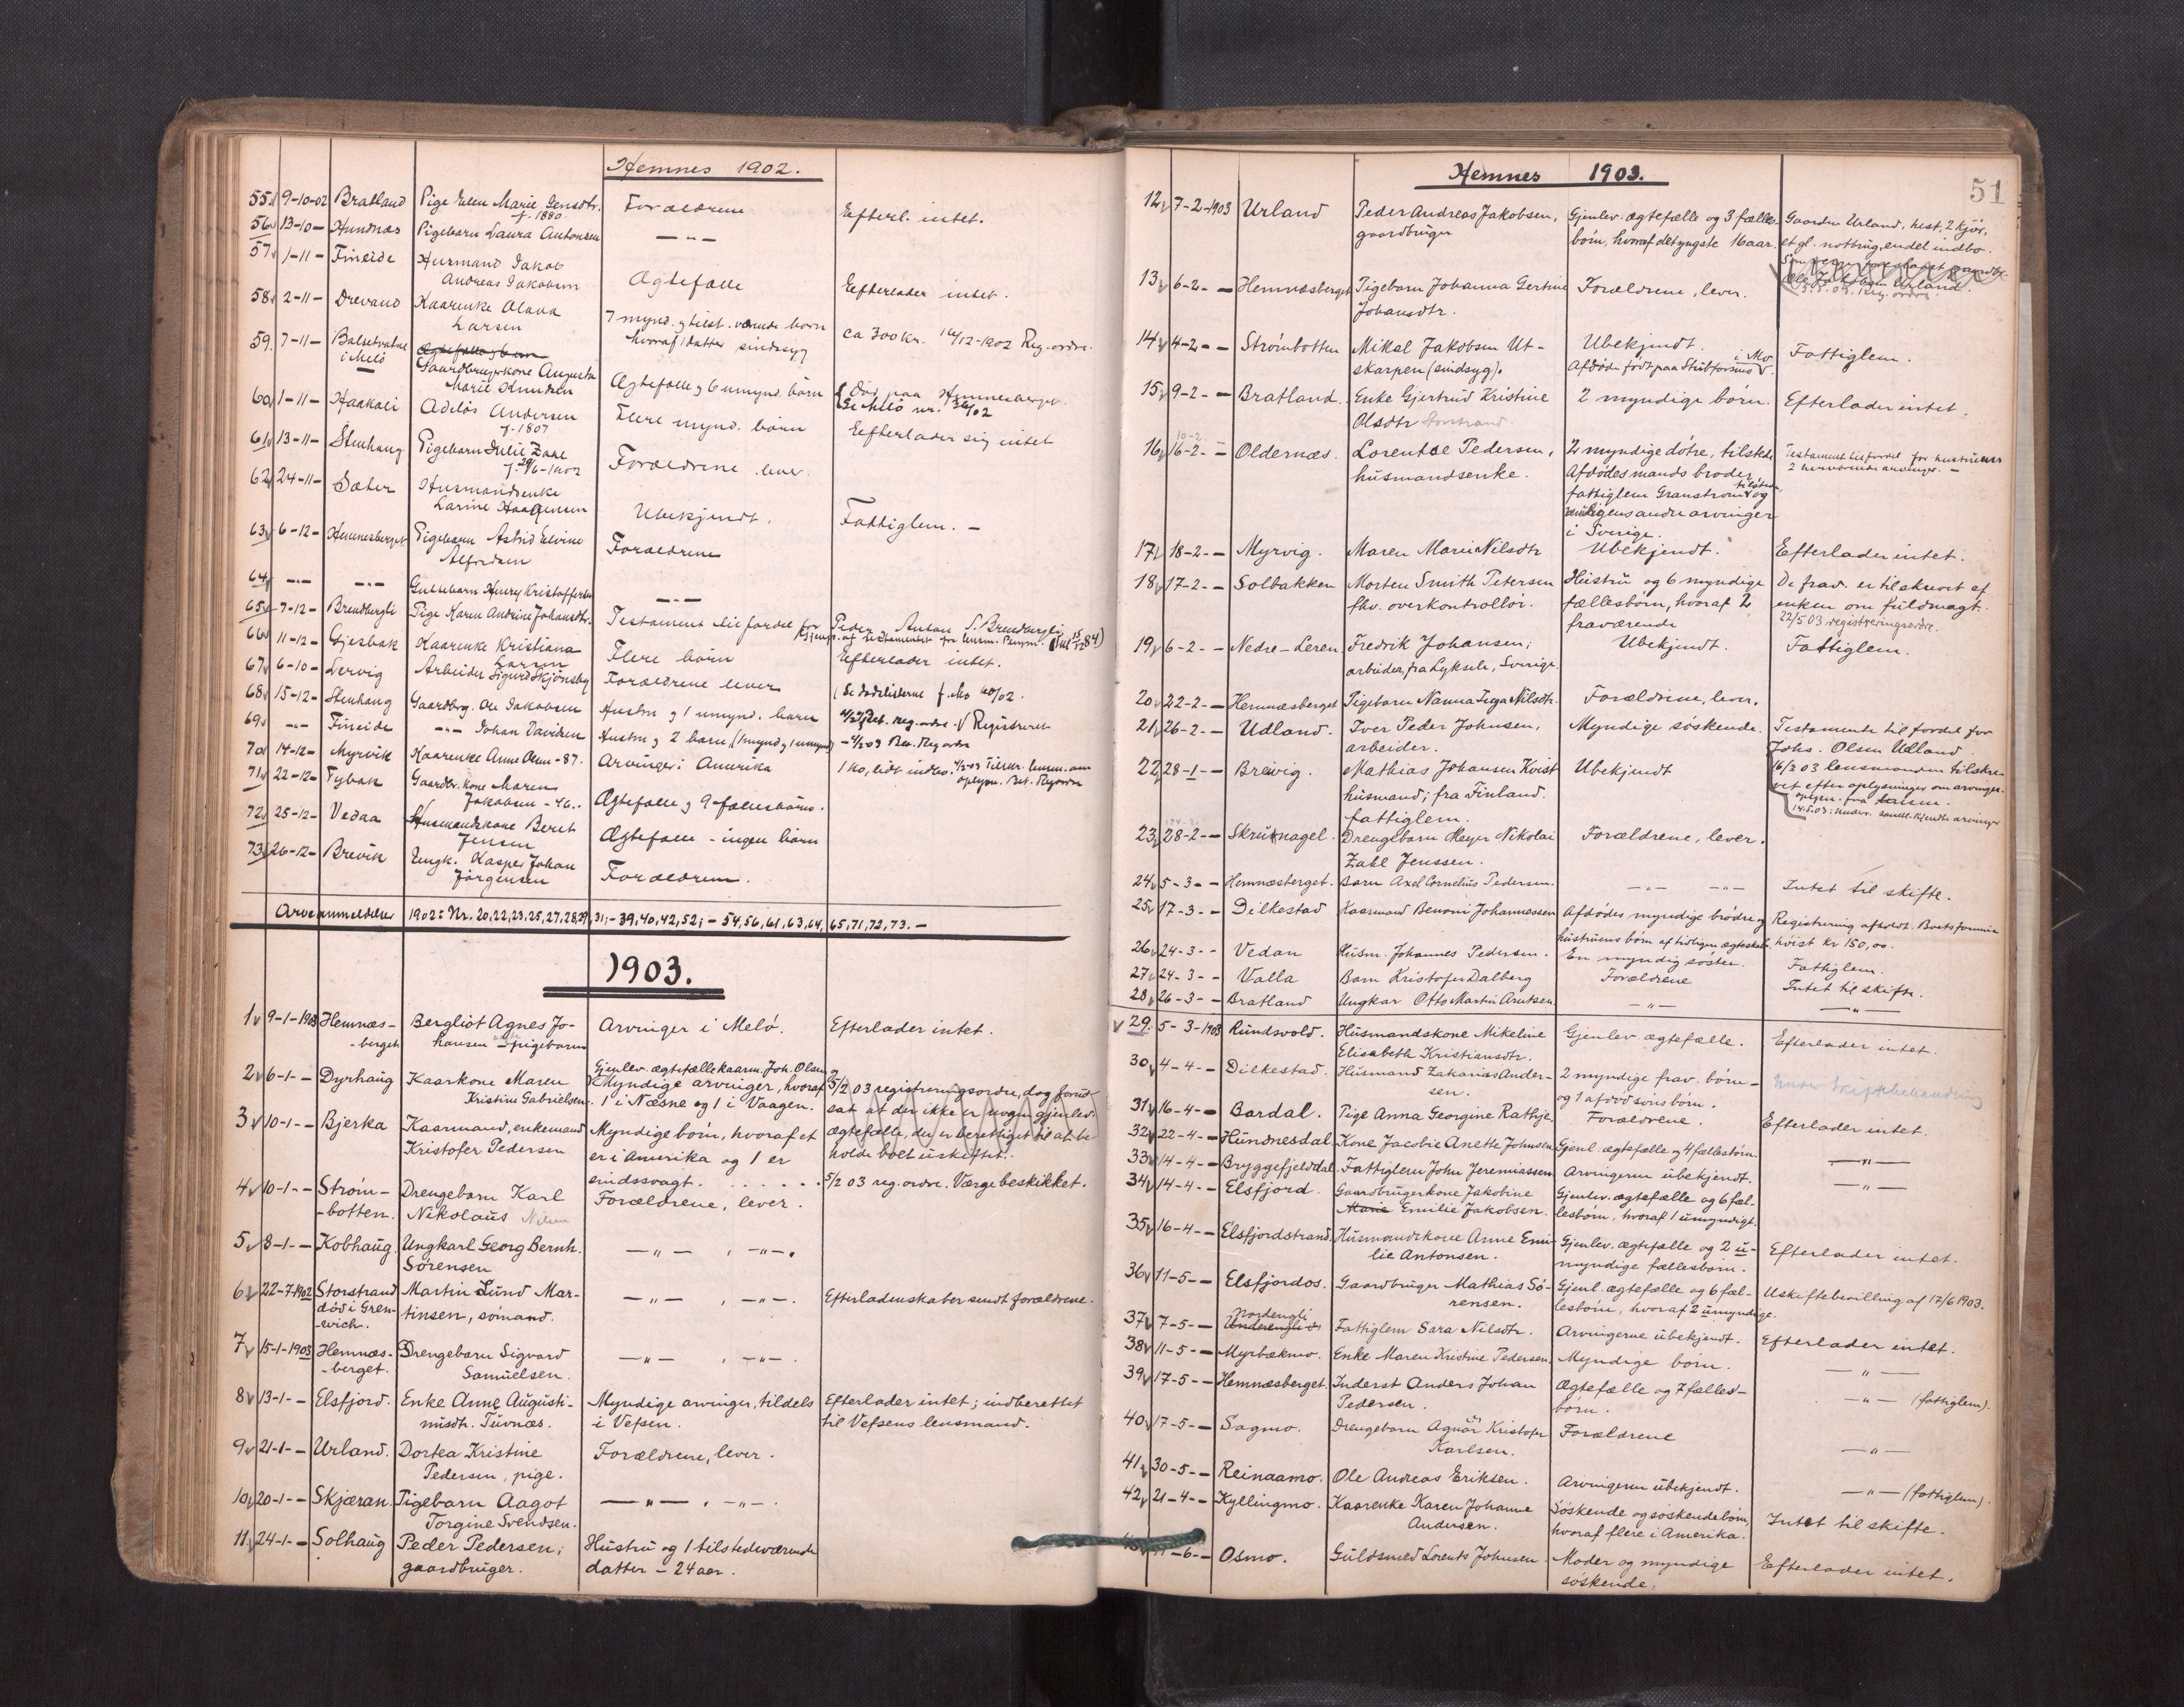 Hemnes 1902.
55 9-10-02 Bratland Pige Elen Marie Jensdtr. Forældrene Efterl. intet.
f. 1880
56 13-10- Hundnæs Pigebarn Laura Antonsen —"—
57 1-11- Fineide Husmand Jakob Ægtefælle Efterlader intet.
Andreas Jakobsen
58 2-11- Drevand Kaarenke Olava 7 mynd. og tilst. værende børn ca 300 kr. 14/12-1902 Reg. ordre.
Larsen hvoraf 1 datter sindssyg
59. 7-11- Balsetvatne
i Melö Gaardbrugerkone Augusta Ægtefælle og 6 umynd. børn Död paa Hemnesberget.
Marie Knudsen Se Melö nr. 36/02
60 1-11- Haakali Adelös Andersen Flere mynd. børn Efterlader sig intet
f. 1807
61 13-11- Stenhaug Pigebarn Julie Zane Forældrene lever.
f. 29/6-1902
62 24-11- Sæter Husmandsenke Ubekjendt. Fattiglem. -
Larine Haagensen
63 6-12- Hemnesberget Pigebarn Astrid Elvine Forældrene
Alfredsen
64 —"— —"— Guttebarn Henry Kristoffersen —"—
65 7-12- Brendbergli Pige Karen Andrine Johansdtr. Testament til fordel for Peder Anton S. Brendbergli
66 11-12- Gjesbak Kaarenke Kristiana Flere børn Efterlader intet.
Larsen
67 6-10- Lervig Arbeider Sigurd Skjönsby Forældrene lever (Se dødslisterne f. Mo 40/02.
68 15-12- Stenhaug Gaardbrg. Ole Jakobsen Hustru og 1 umynd. barn Reg. ordre. Registreret
69 —"— Fineide —"— Johan Davidsen Hustru og 2 barn, (1 mynd og 1 umynd) - 4/2 03 Ber. Reg ordre
70 14-12- Myrvik Kaarenke Anne Olsen - 87. Arvinger i Amerika 1 ko, lidt indbo.
71 22-12- Tybak Gaardbr. kone Maren Ægtefælle og 9 fællesbörn.
Jakobsen - 46.
72 25-12- Vedaa Husmandskone Beret Ægtefælle - ingen børn
Jensen
73 26-12- Brevik Ungk. Kasper Johan Forældrene.
Jörgensen
Arveanmeldelser 1902: Nr. 20, 22, 23, 25, 27, 28, 29, 31, - 39, 40, 42, 52, - 54, 56, 61, 63, 64, 65, 71, 72, 73. -
1903.
1 9-1-1903 Hemnæs- Bergliot Agnes Jo- Arvinger i Melö. Efterlader intet.
-berget hansen - pigebarn
Gjenlev. ægtefælle kaarm. Joh. Olsen
2 6-1- - Dyrhaug Kaarkone Maren Myndige arvinger, hvoraf 5/2 03 registreringsordre, dog forud-
Kristine Gabrielsen. 1 i Næsne og 1 i Vaagen. sat at der ikke er nogen gjenlev.
3 10-1- - Bjerka Kaarmand, enkemand Myndige børn, hvoraf et ægtefælle, der er berettiget til at be-
Kristofer Pedersen er i Amerika og 1 er holde boet uskiftet.
sindssvagt. . . . . . . 5/2 03 reg. ordre. Værge beskikket.
4 10-1- - Ström- Drengebarn Karl Forældrene, lever.
-botten. Nikolaus Nilsen
5 8-1- - Kobhaug Ungkarl Georg Bernh. —"— , —"—.
Sörensen
6 22-7-1902 Storstrand Martin Lund Mar- —"— , —"—. Efterladenskaber sendt forældrene.
död i Green- tinsen, sömand.
wich.
7 15-1-1903 Hemnæs- Drengebarn Sigvard —"— , —"—.
-berget. Samuelsen.
8 13-1- - Elsfjord. Enke Anne Augusti- Myndige arvinger, tildels Efterlader intet; indberettet
nusdtr. Tuvnæs. i Vefsen. til Vefsens lensmand.
9 21-1- - Urland. Dortea Kristine Forældrene, lever.
Pedersen, pige.
10 20-1- - Skjæran. Pigebarn Aagot —"— , —"—.
Torgine Svendsen.
11. 24-1- - Solhaug Peder Pedersen; Hustru og 1 tilstedeværende
gaardbruger. datter - 24 aar.
Hemnes 1903.
51
12 7-2-1903 Urland Peder Andreas Jakobsen, Gjenlev. ægtefælle og 3 fælles- Gaarden Urland, hest, 2 kjör,
gaardbruger börn, hvoraf det yngste 16 aar. et gl. notbrug, endel indbo.
13 6-2- - Hemnæsberget Pigebarn Johanna Gertine Forældrene, lever.
Johansdtr.
14 4-2- - Strömbotten Mikal Jakobsen Ut- Ubekjendt. Fattiglem.
skarpen (sindsyg). Afdöde födt paa Stubforsmo i Mo.
15 9-2- - Bratland. Enke Gjertrud Kristine 2 myndige börn. Efterlader intet.
Olsdtr Storstrand
10-2-
16 16-2- - Oldernæs. Lorentse Pedersen, 2 myndige dötre, tilstede Testament til fordel for hustruens
husmandsenke. Afdödes mands broder 2 nærværende arvinger. -
fattiglem Granström og
muligens andre arvinger
i Sverige.
17 18-2- - Myrvig. Maren Marie Nilsdtr Ubekjendt. Efterlader intet.
18 17-2- - Solbakken Morten Smith Petersen Hustru og 6 myndige De frav. er tilskrevet af
fhv. overkontrollör. fællesbörn, hvoraf 2 enken om fuldmagt.
fraværende 22/5 03 registreringsordre.
19 6-2- - Nedre-Leren Fredrik Johansen; Ubekjendt. Fattiglem.
arbeider, fra Lyksele, Sverige.
20 22-2- - Hemnæsberget Pigebarn Nanna Inga Nilsdtr. Forældrene, lever.
21 26-2- - Udland. Iver Peder Johnsen, Myndige söskende. Testamente til fordel for
arbeider. Johs. Olsen Udland.
22 28-1- - Breivig. Mathias Johansen Kvist Ubekjendt 16/3 03 lensmanden tilskre-
husmand; fra Finland. vet efter oplysninger om arvinger.
fattiglem.
23 28-2- - Skruknagel. Drengebarn Meyer Nikolai Forældrene, lever.
Zahl Jenssen.
24 5-3- - Hemnæsberget. Barn Axel Cornelius Pedersen. —"— —"— Intet til skifte.
25 17-3- - Dilkestad Kaarmand Benoni Johannessen Afdödes myndige brödre og Registrering afholdt. Boets formue
hustruens börn af tidligere ægteskab. hvist kr 150,00.
26 24-3- - Vedaa Husm. Johannes Pedersen. En myndig söster. Fattiglem.
27 24-3- - Valla Barn Kristofer Dalberg Forældrene Intet til skifte.
28 26-3- - Bratland Ungkar Otto Martin Arntsen —"— —"—
29. 5-3-1903 Rundsvold. Husmandskone Mikeline Gjenlev. ægtefælle. Efterlader intet.
Elisabeth Kristiansdtr.
30 4-4- - Dilkestad. Husmand Zakarias Ander- 2 myndige frav. börn - Under Skiftebehandling
sen. og 1 afdöd söns börn.
31 16-4- - Bardal. Pige Anna Georgine Rathje. Forældrene. Efterlader intet.
32 22-4- - Hundnesdal Kone Jacobie Anette Johnsen Gjenl. ægtefælle og 4 fællesbörn. —"—
33 14-4- - Bryggefjelddal. Fattiglem John Jeremiassen Arvingerne ubekjendt. —"—
34 14-4- - Elsfjord. Gaardbrugerkone Jakobine Gjenlev. ægtefælle og 6 fæl-
Marie Emilie Jakobsen. lesbörn, hvoraf 1 umyndigt.
35 16-4- - Elsfjordstrand. Husmandskone Anne Emi- Gjenlev. ægtefælle og 2 u- Efterlader intet.
lie Antonsen. myndige fællesbörn.
36 11-5- - Elsfjordos. Gaardbruger Mathias Sö- Gjenl. ægtefælle og 6 fæl- Uskiftebevilling af 17/6 1903.
rensen. lesbörn, hvoraf 2 umyndige.
Nordengli
37 7-5- - Fattiglem Sara Nilsdtr. Arvingerne ubekjendt. Efterlader intet.
38 11-5- - Myrbækmo. Enke Maren Kristine Pedersen. Myndige börn. —"—
39 17-5- - Hemnæsberget. Inderst Anders Johan Ægtefælle og 7 fælles- —"— (fattiglem).
Pedersen. born.
40 17-5- - Sagmo. Drengebarn Agnar Kristofer Forældrene —"—
Karlsen.
41 30-5- - Reinaamo. Ole Andreas Eriksen. Arvingerne ubekjendt. —"— (fattiglem).
42 21-4- - Kyllingmo. Kaarenke Karen Johanne Söskende og söskendebörn, Intet til skifte.
Andersen. hvoraf flere i Amerika.
-6- - Osmo. Guldsmed Lorents Johnsen Moder og myndige Efterlader intet.
söskende.